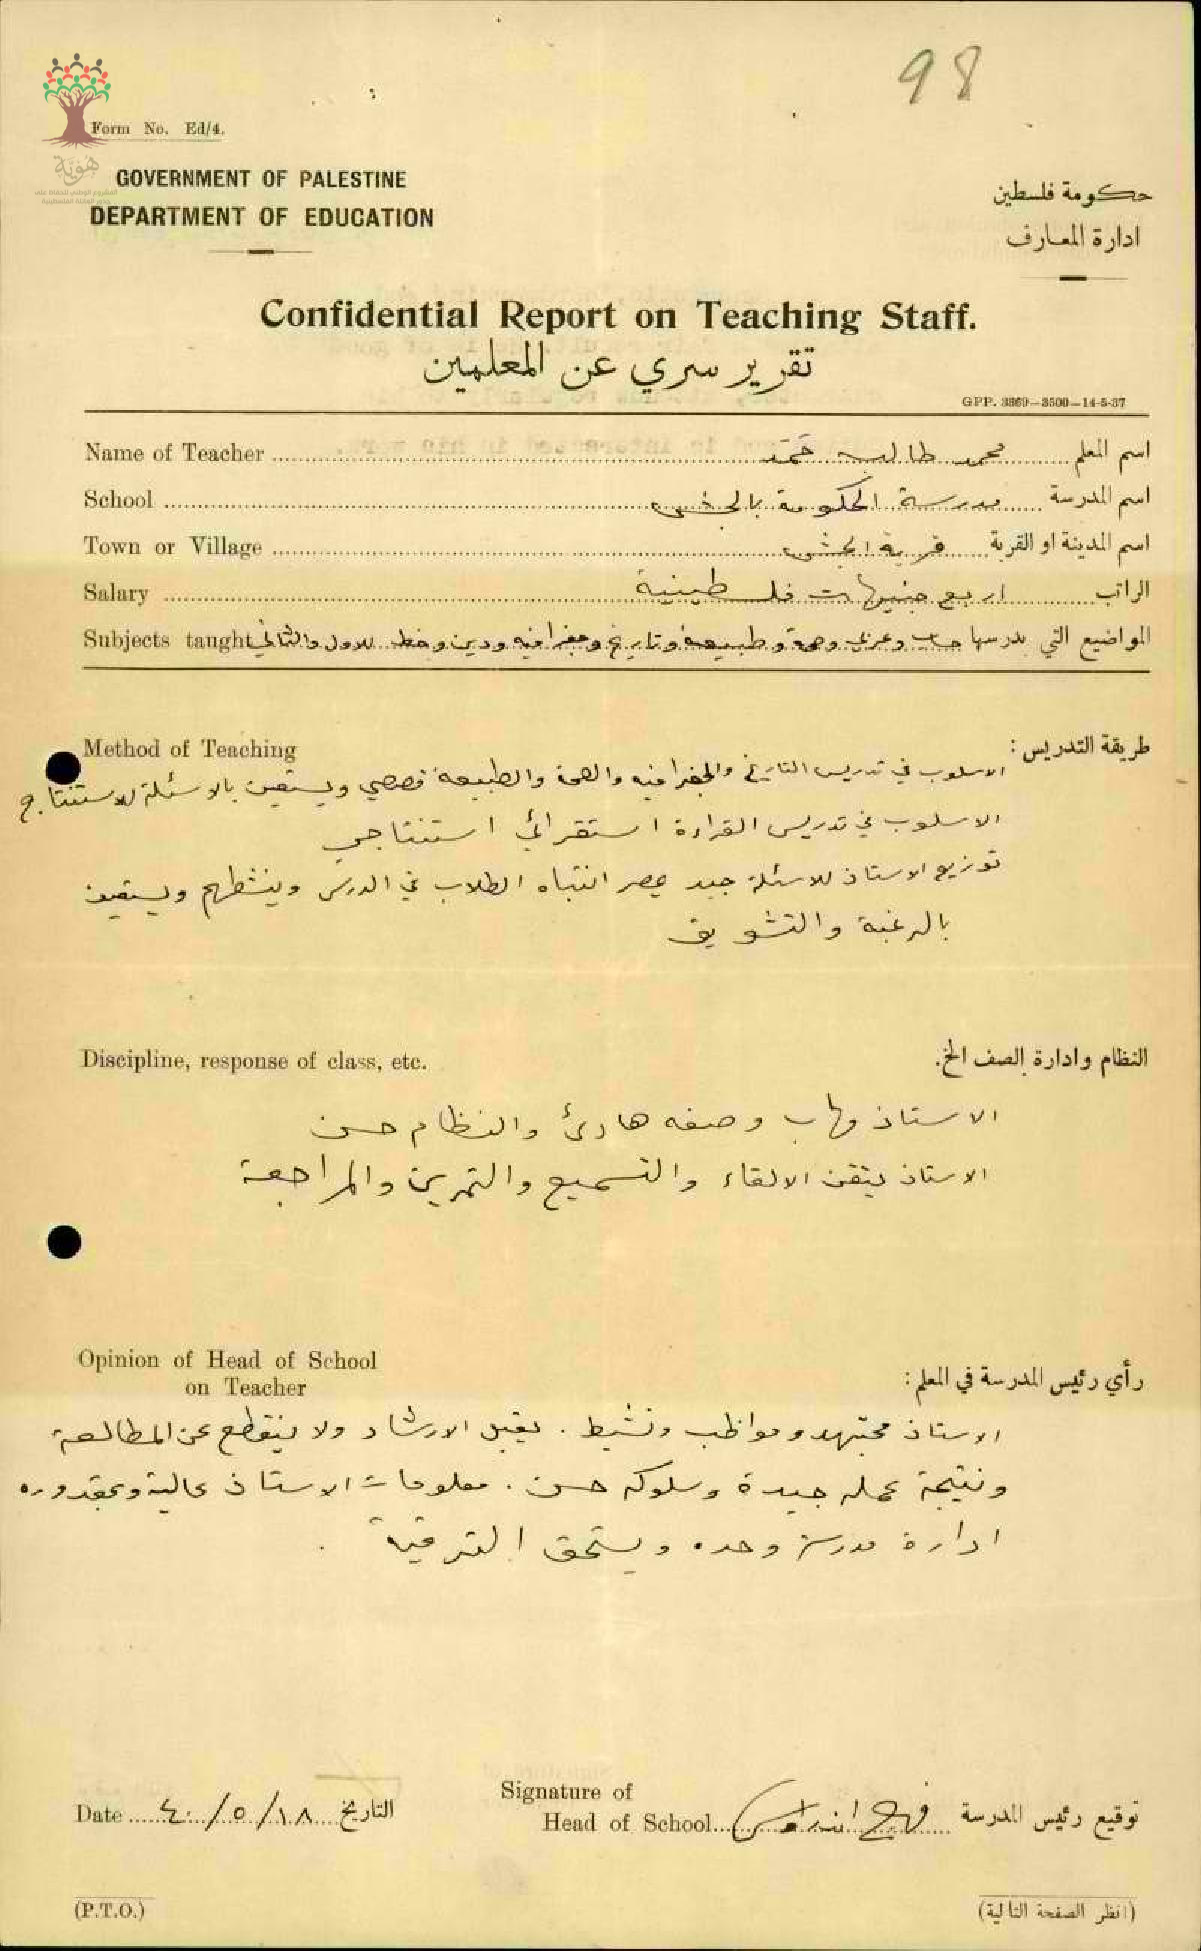 98
Form No. Ed/4.
هُوِيَّة
GOVERNMENT OF PALESTINE
DEPARTMENT OF EDUCATION
حكومة فلسطين
ادارة المعارف
Confidential Report on Teaching Staff.
تقرير سري عن المعلمين
GPP. 3869—3500—14-5-37
Name of Teacher محمد طالب حَمَد اسم المعلم
School مدرسة الحكومة بالجش اسم المدرسة
Town or Village قرية الجش اسم المدينة او القرية
Salary اربع جنيهات فلسطينية الراتب
Subjects taught المواضيع التي يدرسها حساب وعربي وصحة وطبيعة وتاريخ وجغرافيه ودين وخط للاول والثاني
Method of Teaching طريقة التدريس :
الاسلوب في تدريس التاريخ والجغرافيه والصحة والطبيعة قصصي ويستعين بالاسئلة للاستنتاج
الاسلوب في تدريس القراءة استقرائي استنتاجي
توزيع الاستاذ للاسئلة جيد يحصر انتباه الطلاب في الدرس وينشطهم ويستعين
بالرغبة والتشويق
Discipline, response of class, etc. النظام وادارة الصف الخ.
الاستاذ مهاب وصفه هادئ والنظام حسن
الاستاذ يتقن الالقاء والتسميع والتمرين والمراجعة
Opinion of Head of School
on Teacher
رأي رئيس المدرسة في المعلم :
الاستاذ مجتهد ومواظب ونشيط . يقبل الارشاد ولا ينقطع عن المطالعة
ونتيجة عمله جيدة وسلوكه حسن . معلومات الاستاذ عالية وبمقدوره
ادارة مدرسة وحده ويستحق الترقية .
Signature of
Head of School توقيع رئيس المدرسة
Date ١٨/٥/٤٠ التاريخ
(P.T.O.)
(انظر الصفحة التالية)